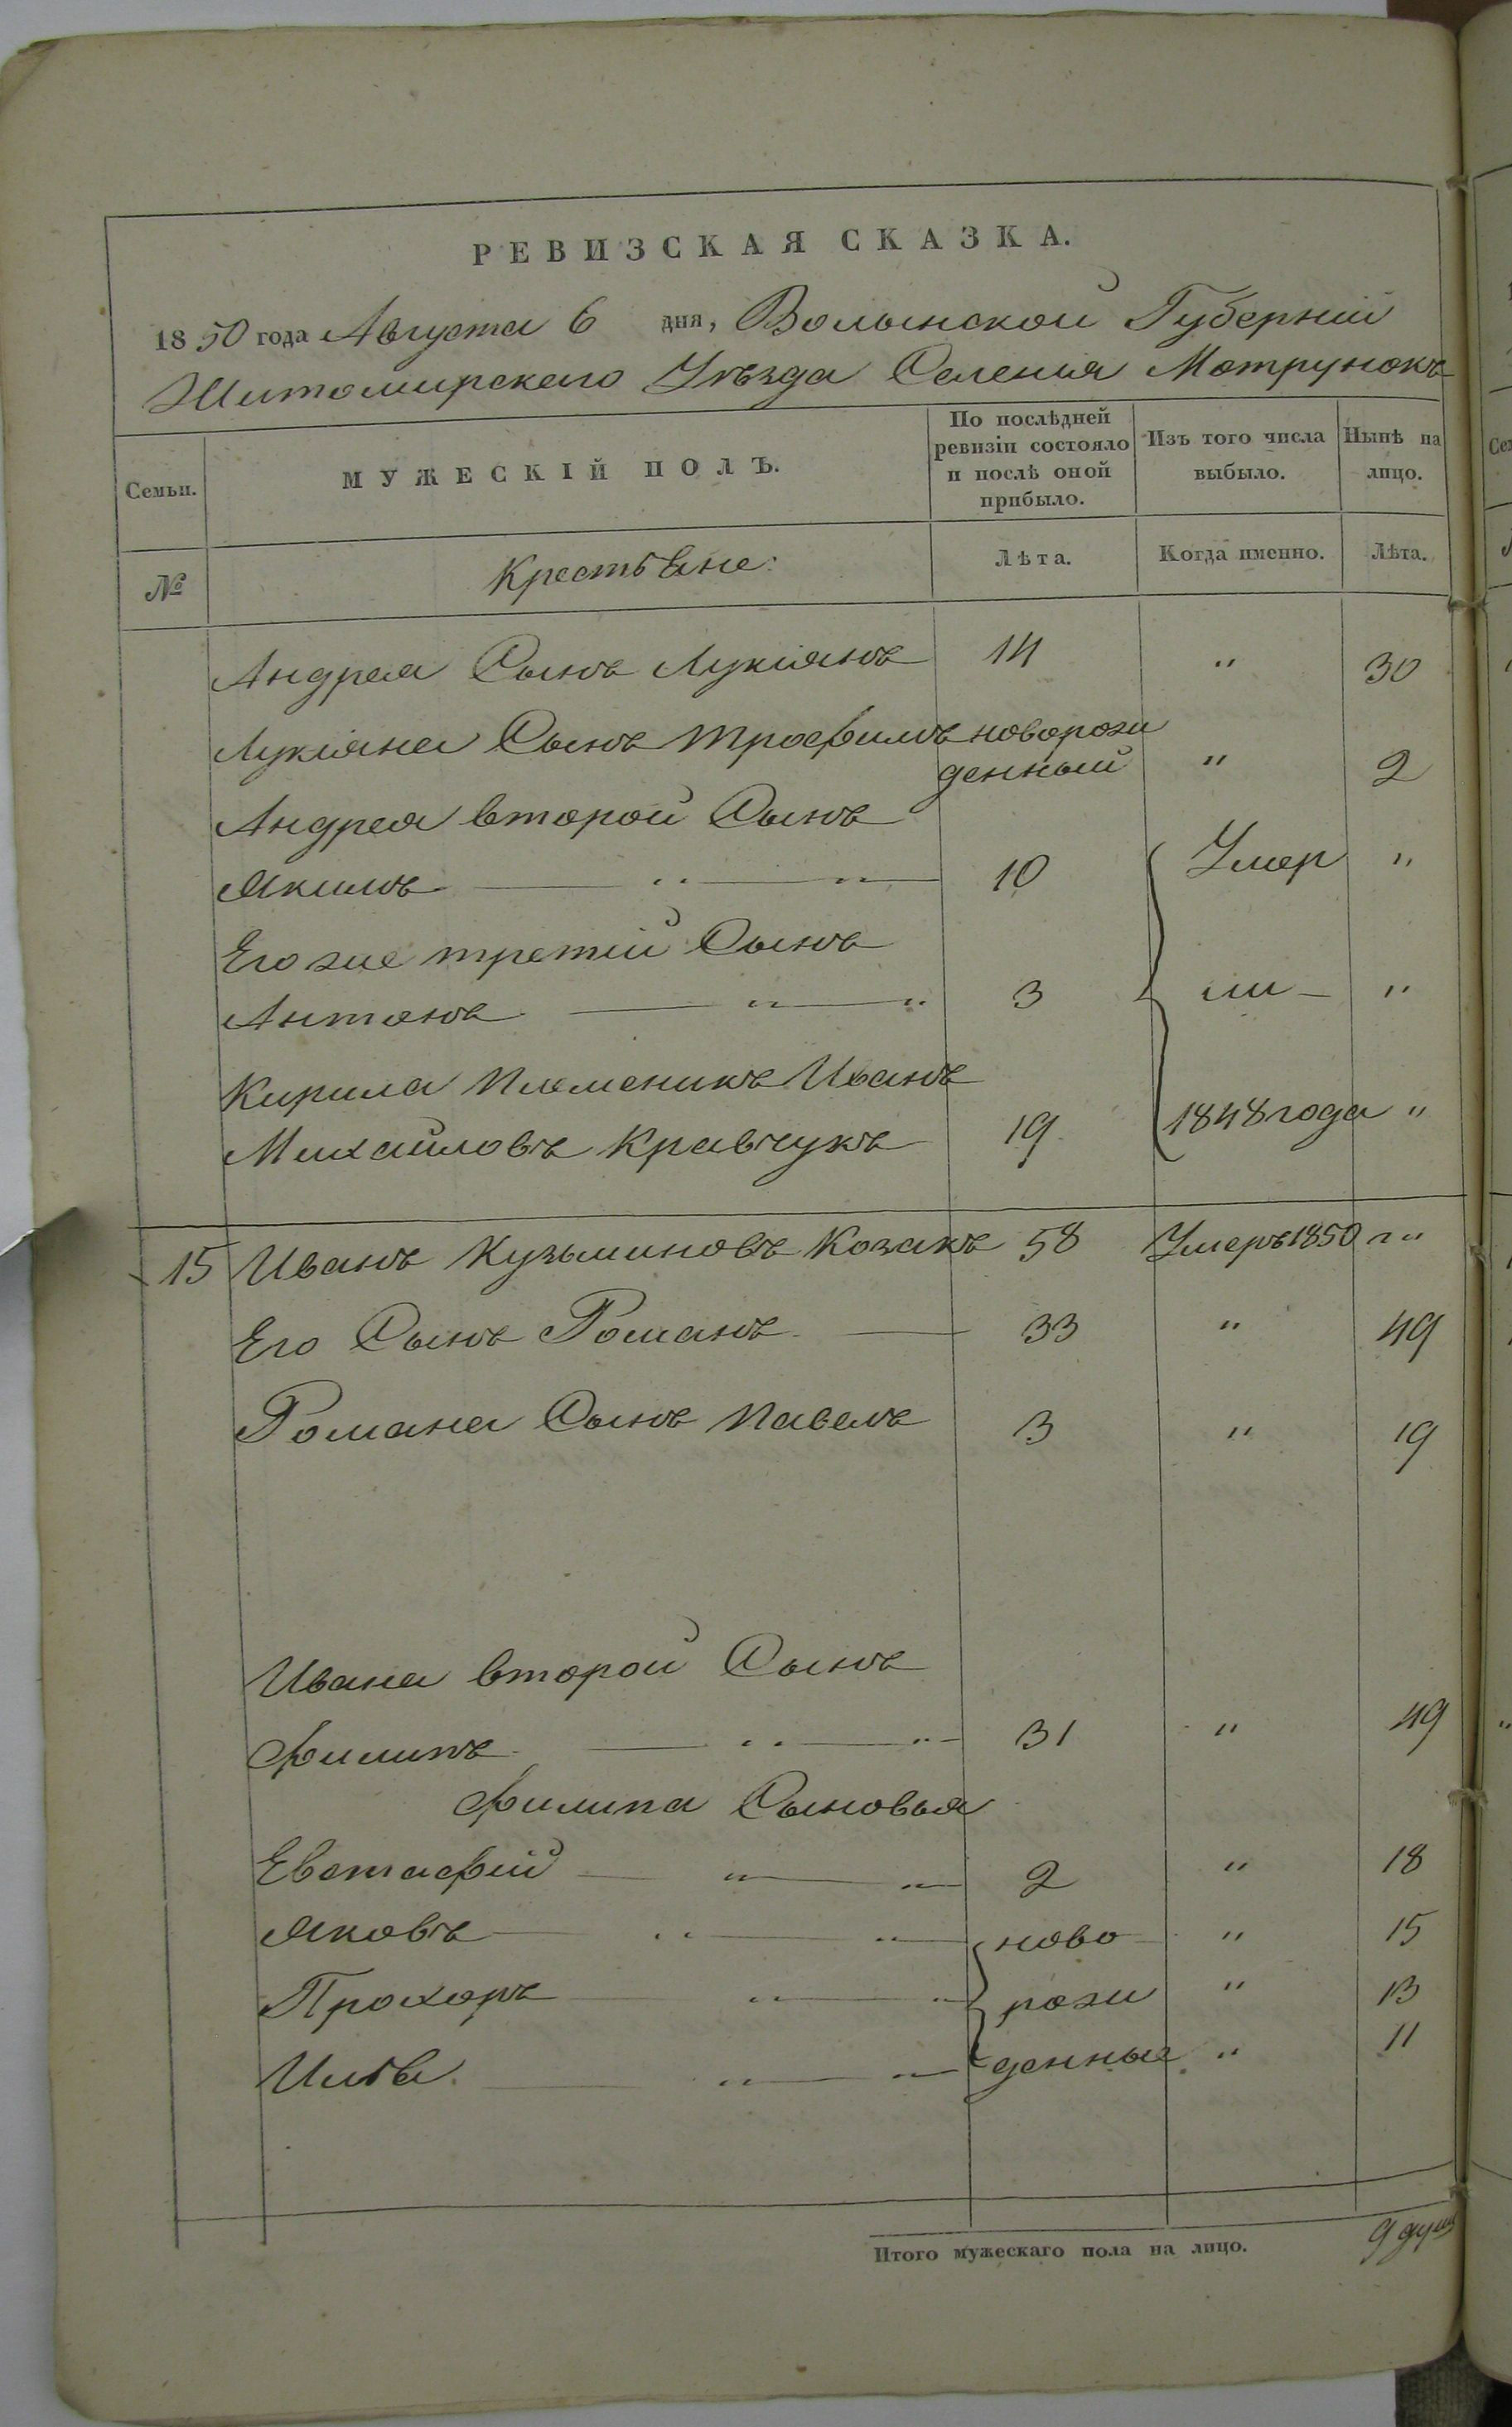 РЕВИЗСКАЯ СКАЗКА.
1850 года Августа 6 дня, Волынской Губерніи
Житомирскаго Уѣзда Селенія Мотрунокъ
Семьи. МУЖЕСКІЙ ПОЛЪ. По послѣдней ревизіи состояло и послѣ оной прибыло. Изъ того числа выбыло. Нынѣ на лицо.
№ Крестьяне: Лѣта. Когда именно. Лѣта.
Андрея Сынъ Лукіянъ 14 " 30
Лукіяна Сынъ Трофимъ новорож
денный " 2
Андрея второй Сынъ
Якимъ 10 Умер "
Его же третій Сынъ
Антонъ 3 ли "
Кирила Племеникъ Иванъ
Михайловъ Кравчукъ 19 1848 года "
15 Иванъ Кузьминовъ Козакъ 58 Умеръ 1850 г "
Его Сынъ Романъ 33 " 49
Романа Сынъ Павелъ 3 " 19
Ивана второй Сынъ
Филипъ 31 " 49
Филипа Сыновья
Евстафій 2 " 18
Яковъ ново " 15
Прохоръ рож " 13
Илья денные " 11
Итого мужескаго пола на лицо. 9 душ